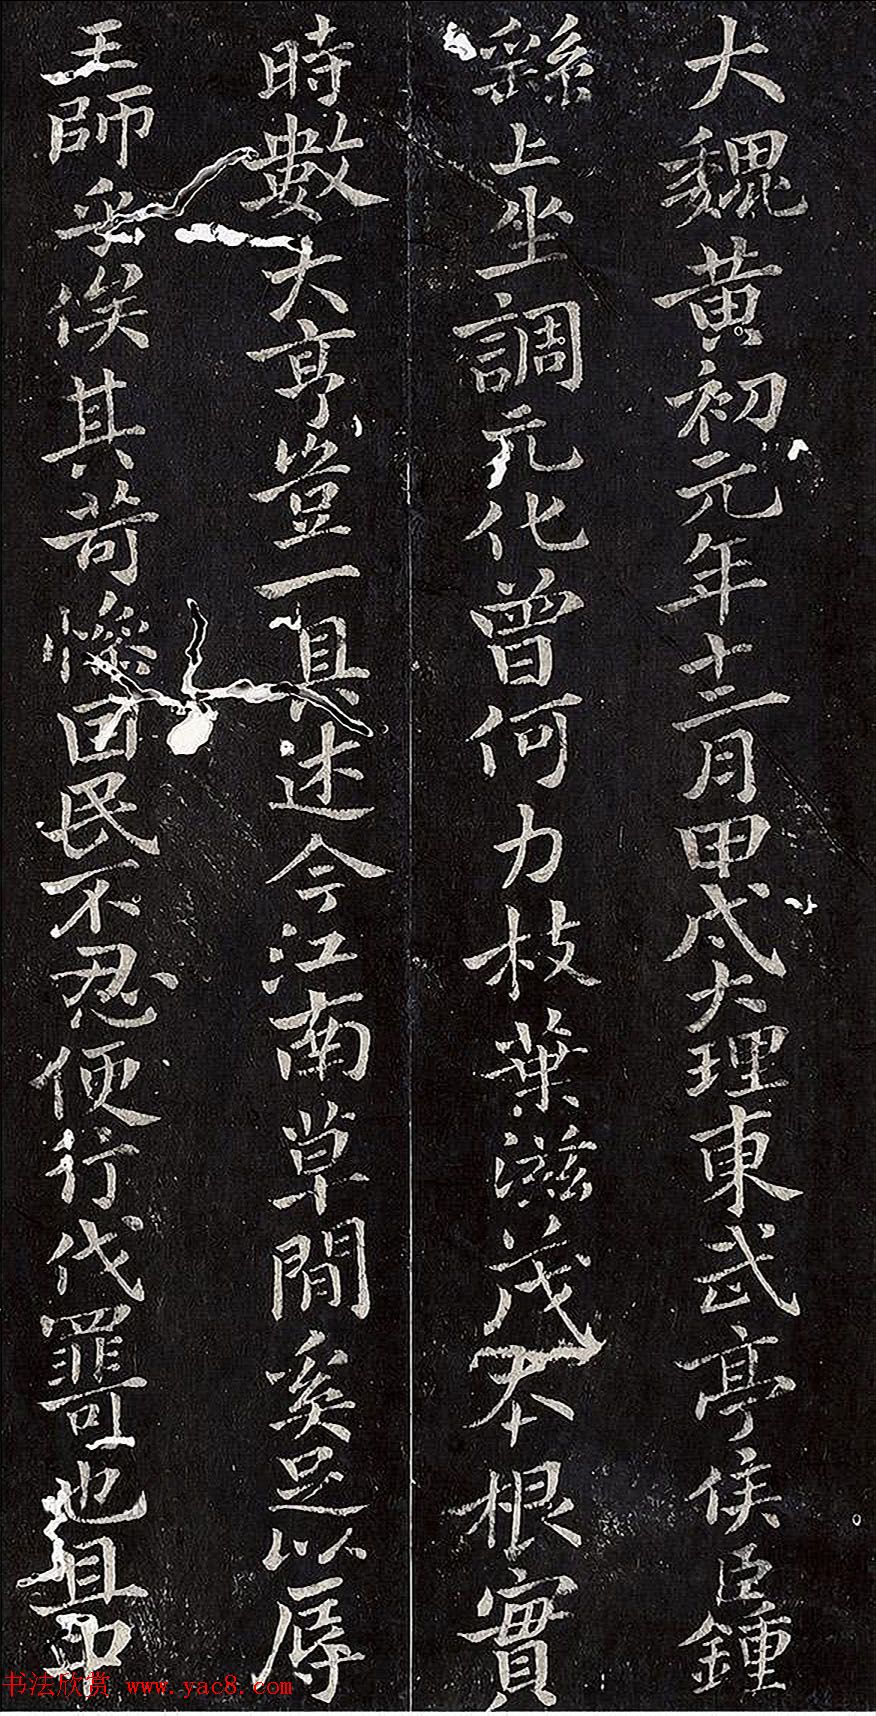 大魏黄初元年十二月甲戌大理東武亭侯臣鍾
繇上坐調元化曾何力枝葉滋茂本根實
時數大亨豈一具述今江南草間奚足以辱
王師乎俟其苛慘因民不忍便行伐罪可也且中
书法欣赏 www.yac8.com